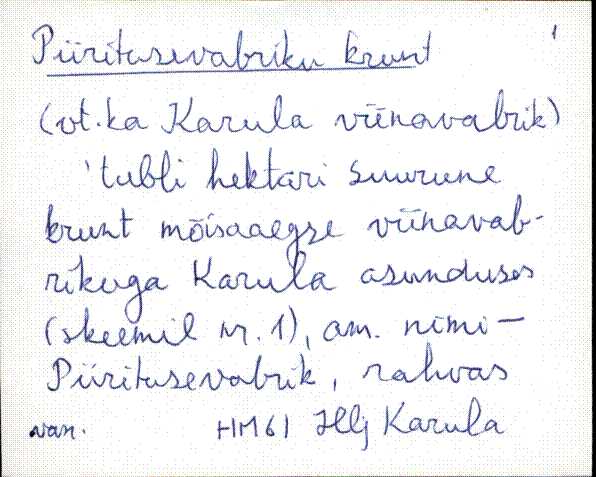 Piiritusevabriku krunt 1
(vt. ka Karula viinavabrik)
'tubli hektari suurune
krunt mõisaaegse viinavab-
rikuga Karula asunduses
(skeemil nr. 1), am. nimi —
Piiritusevabrik, rahvas
van. HM61 Hlj Karula